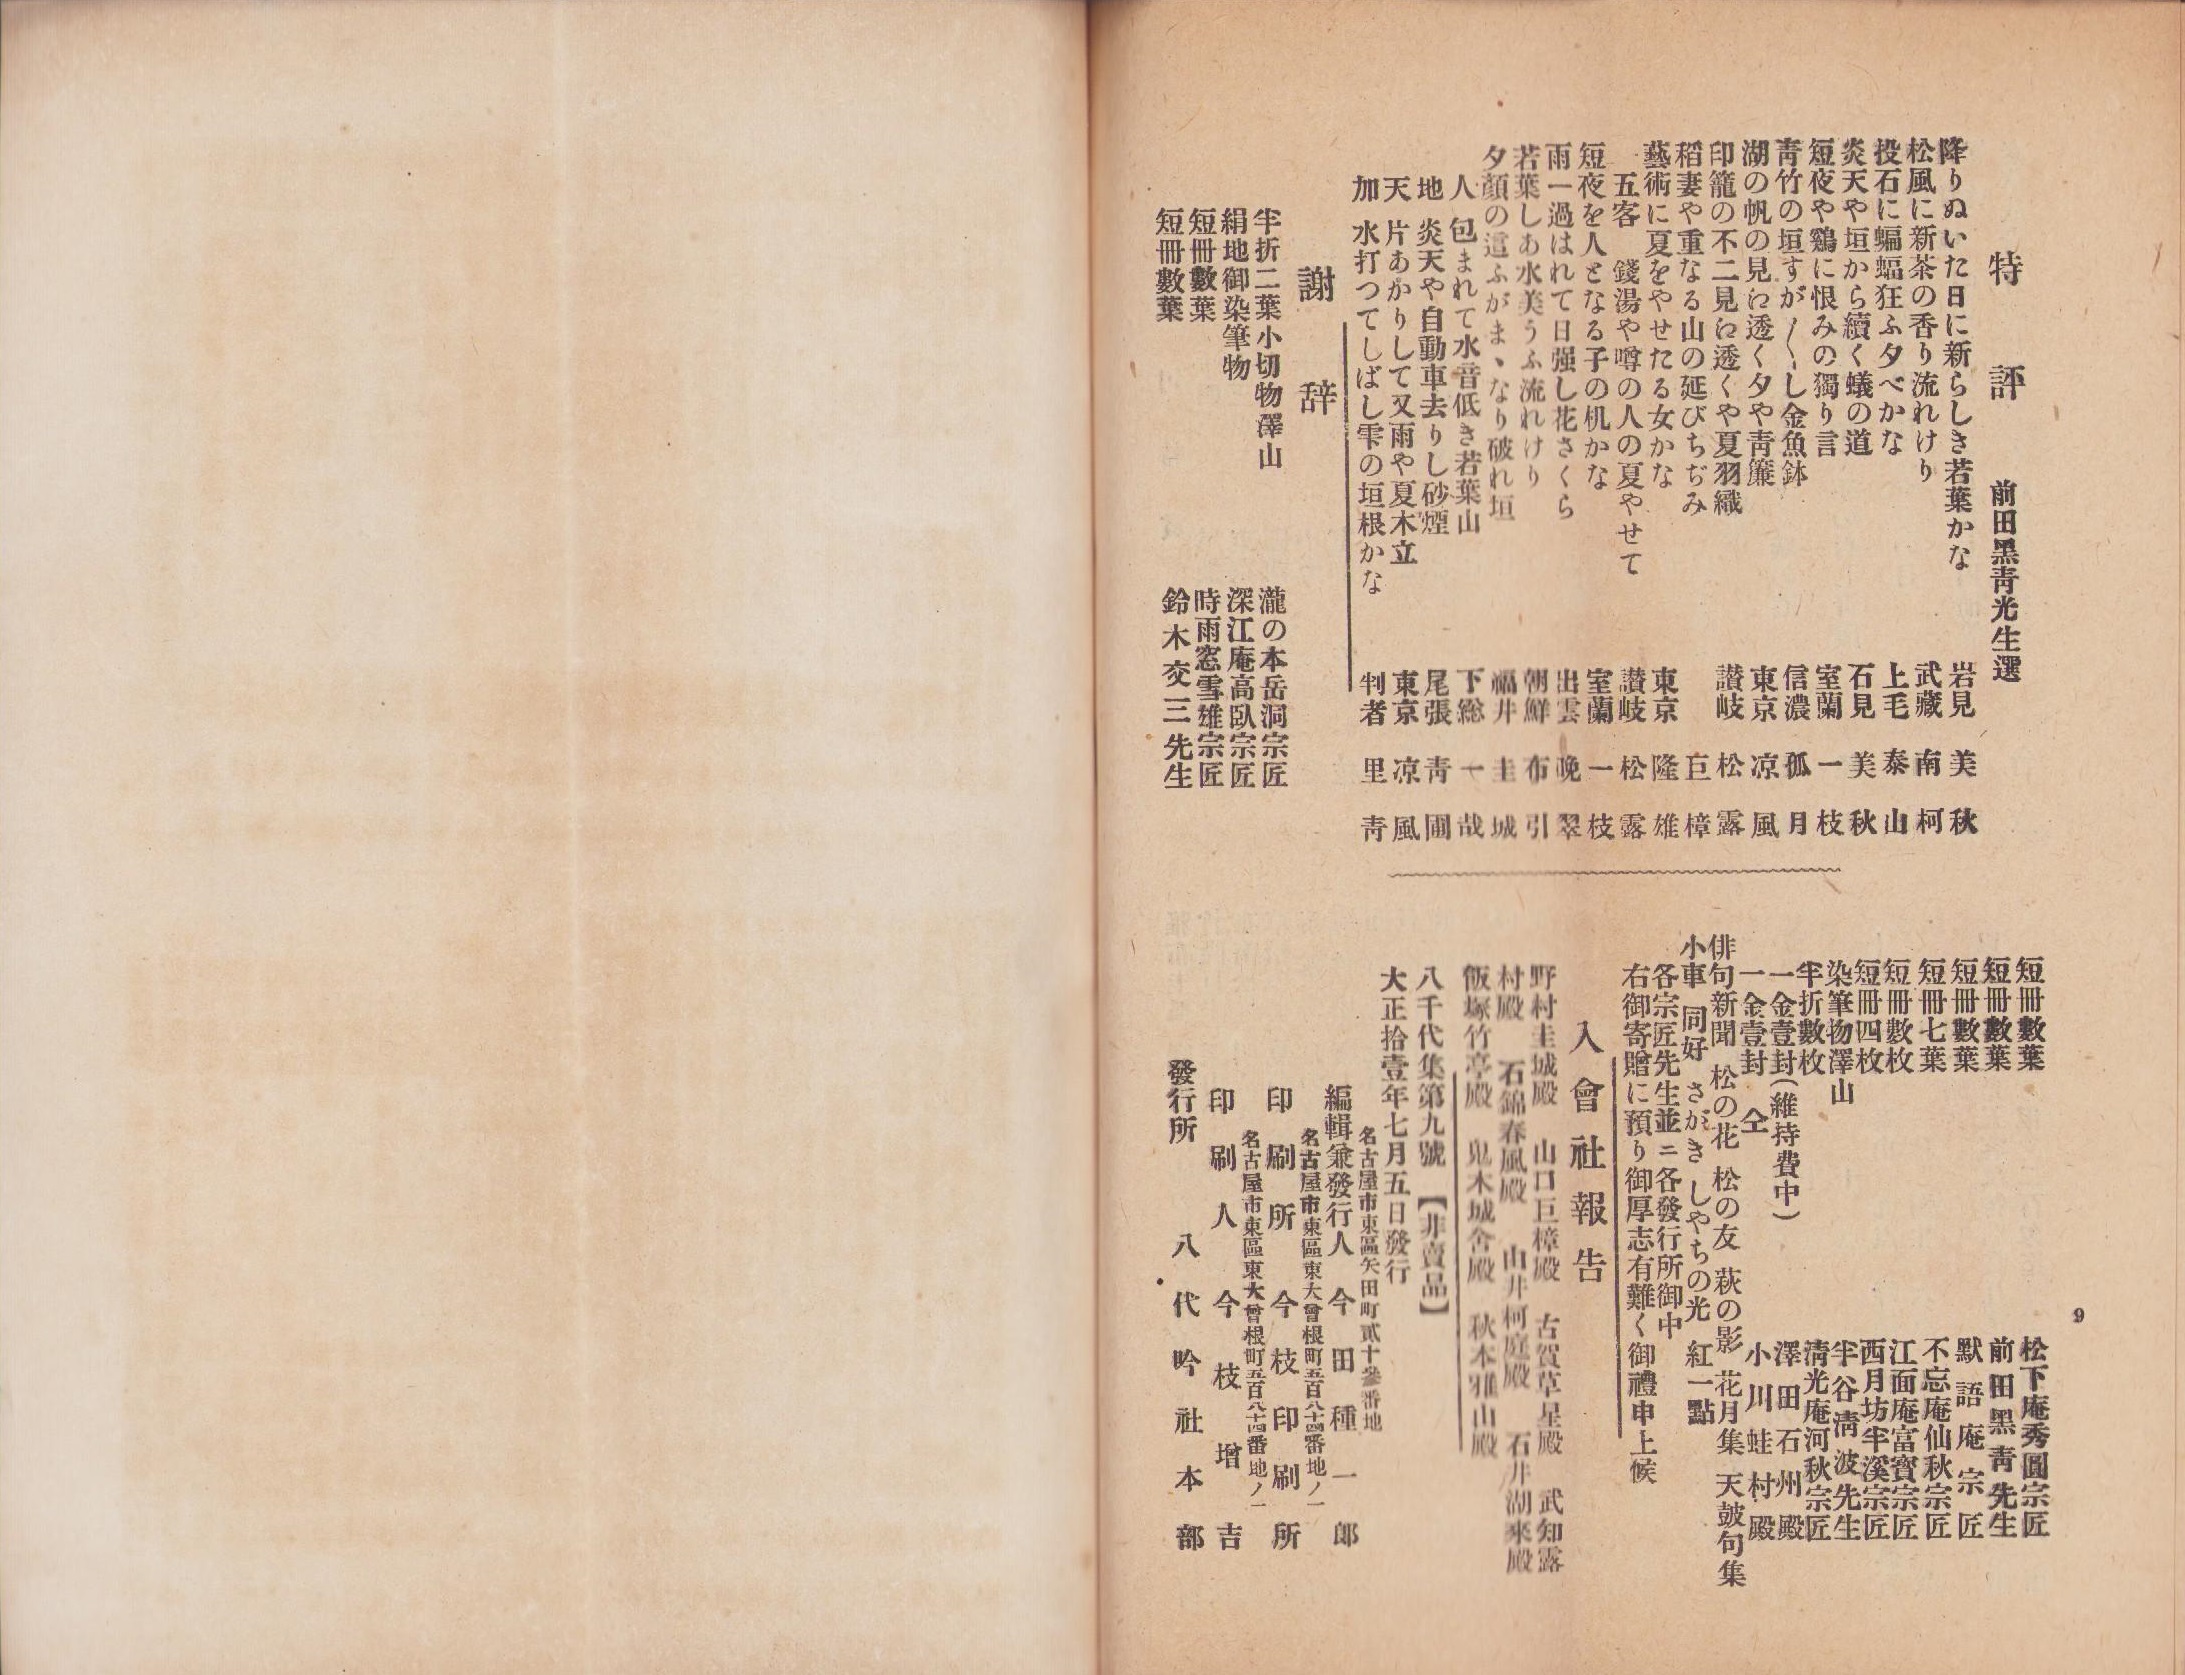 特評 前田黑靑光生選
降りぬいた日に新らしき若葉かな 岩見 美秋
松風に新茶の香り流れけり 武藏 南柯
投石に蝙蝠狂ふ夕べかな 上毛 泰山
炎天や垣から續く蟻の道 石見 美秋
短夜や鷄に恨みの獨り言 室蘭 一枝
靑竹の垣すが〳〵し金魚鉢 信濃 孤月
湖の帆の見に透く夕や靑簾 東京 凉風
印籠の不二見に透くや夏羽織 讃岐 松露
稻妻や重なる山の延びちぢみ 巨樟
藝術に夏をやせたる女かな 東京 隆雄
五客 錢湯や噂の人の夏やせて 讃岐 松露
短夜を人となる子の机かな 室蘭 一枝
雨一過はれて日强し花さくら 出雲 晚翠
若葉しあ水美うふ流れけり 朝鮮 布引
夕顏の這ふがまゝなり破れ垣 福井 圭城
人 包まれて水音低き若葉山 下総 一哉
地 炎天や自動車去りし砂煙 尾張 靑圃
天 片あかりして又雨や夏木立 東京 凉風
加 水打つてしばし雫の垣根かな 判者 里靑
謝辞
半折二葉小切物澤山 瀧の本岳洞宗匠
絹地御染筆物 深江庵高臥宗匠
短冊數葉 時雨窓雪雄宗匠
短冊數葉 鈴木交三先生
9
短冊數葉 松下庵秀圓宗匠
短冊數葉 前田黑靑先生
短冊數葉 默語庵宗匠
短冊七葉 不忘庵仙秋宗匠
短冊數枚 江面庵富寳宗匠
短冊四枚 西月坊半溪宗匠
染筆物澤山 半谷淸波先生
半折數枚 淸光庵河秋宗匠
一金壹封(維持費中) 澤田石州殿
一金壹封 仝 小川蛙村殿
俳句新聞 松の花 松の友 萩の影 花月集 天皷句集
小車 同好 さがき しやちの光 紅一點
各宗匠先生並ニ各發行所御中
右御寄贈に預り御厚志有難く御禮申上候
入會社報告
野村圭城殿 山口巨樟殿 古賀草星殿 武知露
村殿 石錦春風殿 山井柯庭殿 石井湖來殿
飯塚竹亭殿 鬼木城舍殿 秋本雅山殿
八千代集第九號 【非賣品】
大正拾壹年七月五日發行
名古屋市東區矢田町貳十參番地
編輯兼發行人 今田種一郎
名古屋市東區東大曾根町五百八十四番地ノ一
印刷所 今枝印刷所
名古屋市東區東大曾根町五百八十四番地ノ一
印刷人 今枝增吉
發行所 八代吟社本部